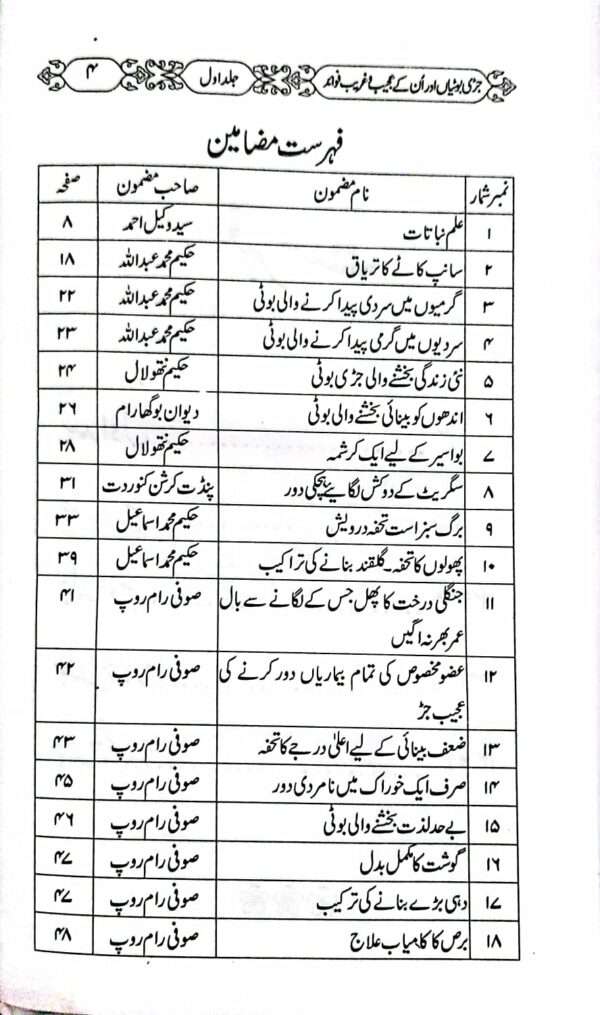 جڑی بوٹیاں اور اُن کے عجیب و غریب فوائد جلد اول ۴
فہرست مضامین
نمبر شمار نام مضمون صاحب مضمون صفحہ
۱ علم نباتات سید وکیل احمد ۸
۲ سانپ کاٹے کا تریاق حکیم محمد عبداللہ ۱۸
۳ گرمیوں میں سردی پیدا کرنے والی بوٹی حکیم محمد عبداللہ ۲۲
۴ سردیوں میں گرمی پیدا کرنے والی بوٹی حکیم محمد عبداللہ ۲۳
۵ نئی زندگی بخشنے والی جڑی بوٹی حکیم نتھولال ۲۴
۶ اندھوں کو بینائی بخشنے والی بوٹی دیوان بوگھارام ۲۶
۷ بواسیر کے لیے ایک کرشمہ حکیم نتھولال ۲۸
۸ سگریٹ کے دوکش لگایے ہچکی دور پنڈت کرشن کنوردت ۳۱
۹ برگ سبز است تحفہ درویش حکیم محمد اسماعیل ۳۳
۱۰ پھولوں کا تحفہ۔ گلقند بنانے کی تراکیب حکیم محمد اسماعیل ۳۹
۱۱ جنگلی درخت کا پھل جس کے لگانے سے بال صوفی رام روپ ۴۱
عمر بھر نہ اگیں
۱۲ عضو مخصوص کی تمام بیماریاں دور کرنے کی صوفی رام روپ ۴۲
عجیب جڑ
۱۳ ضعف بینائی کے لیے اعلیٰ درجے کا تحفہ صوفی رام روپ ۴۳
۱۴ صرف ایک خوراک میں نامردی دور صوفی رام روپ ۴۵
۱۵ بے حد لذت بخشنے والی بوٹی صوفی رام روپ ۴۶
۱۶ گوشت کا مکمل بدل صوفی رام روپ ۴۷
۱۷ دہی بڑے بنانے کی ترکیب صوفی رام روپ ۴۷
۱۸ برص کا کامیاب علاج صوفی رام روپ ۴۸